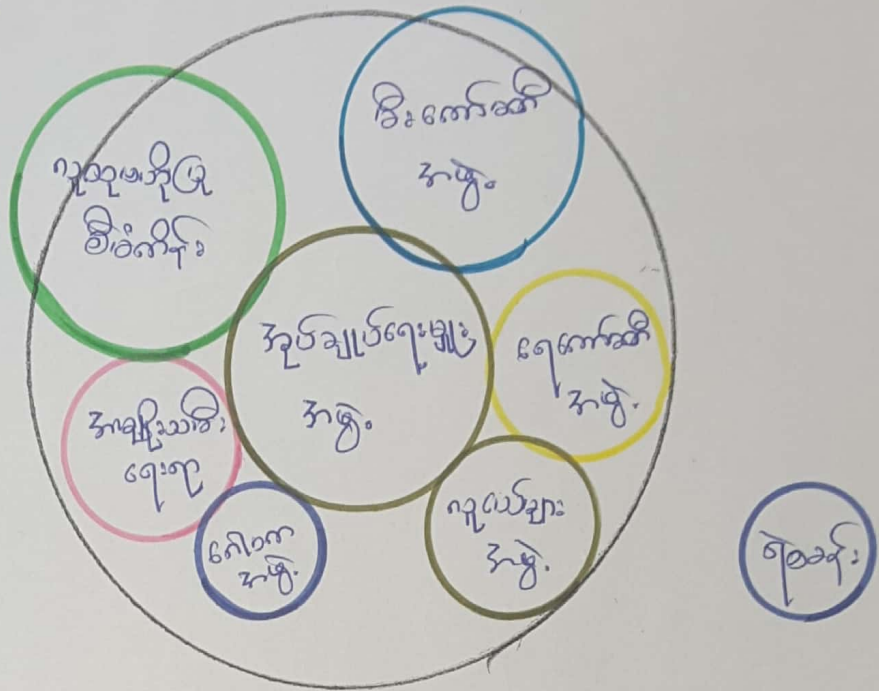 မီးကော်မတီ
အဖွဲ့
လူထုဗဟိုပြု
စီမံကိန်း
အုပ်ချုပ်ရေးမှူး
အဖွဲ့
ရေကော်မတီ
အဖွဲ့
အမျိုးသမီး
ရေးရာ
ဂေါပက
အဖွဲ့
လူငယ်များ
အဖွဲ့
ရဲစခန်း